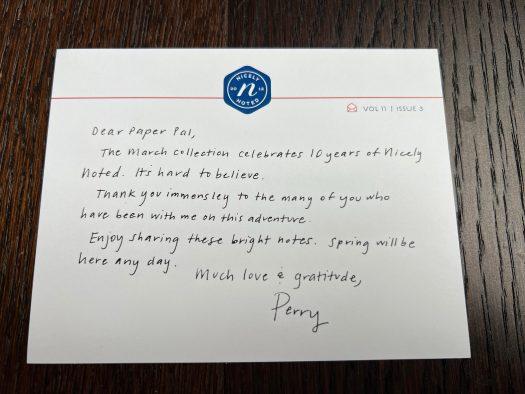 NICELY
20 n 12
NOTED
VOL 11 | ISSUE 3
Dear Paper Pal,
The March collection celebrates 10 years of Nicely
Noted. It's hard to believe.
Thank you immensley to the many of you who
have been with me on this adventure.
Enjoy sharing these bright notes. Spring will be
here any day.
Much love & gratitude,
Perry